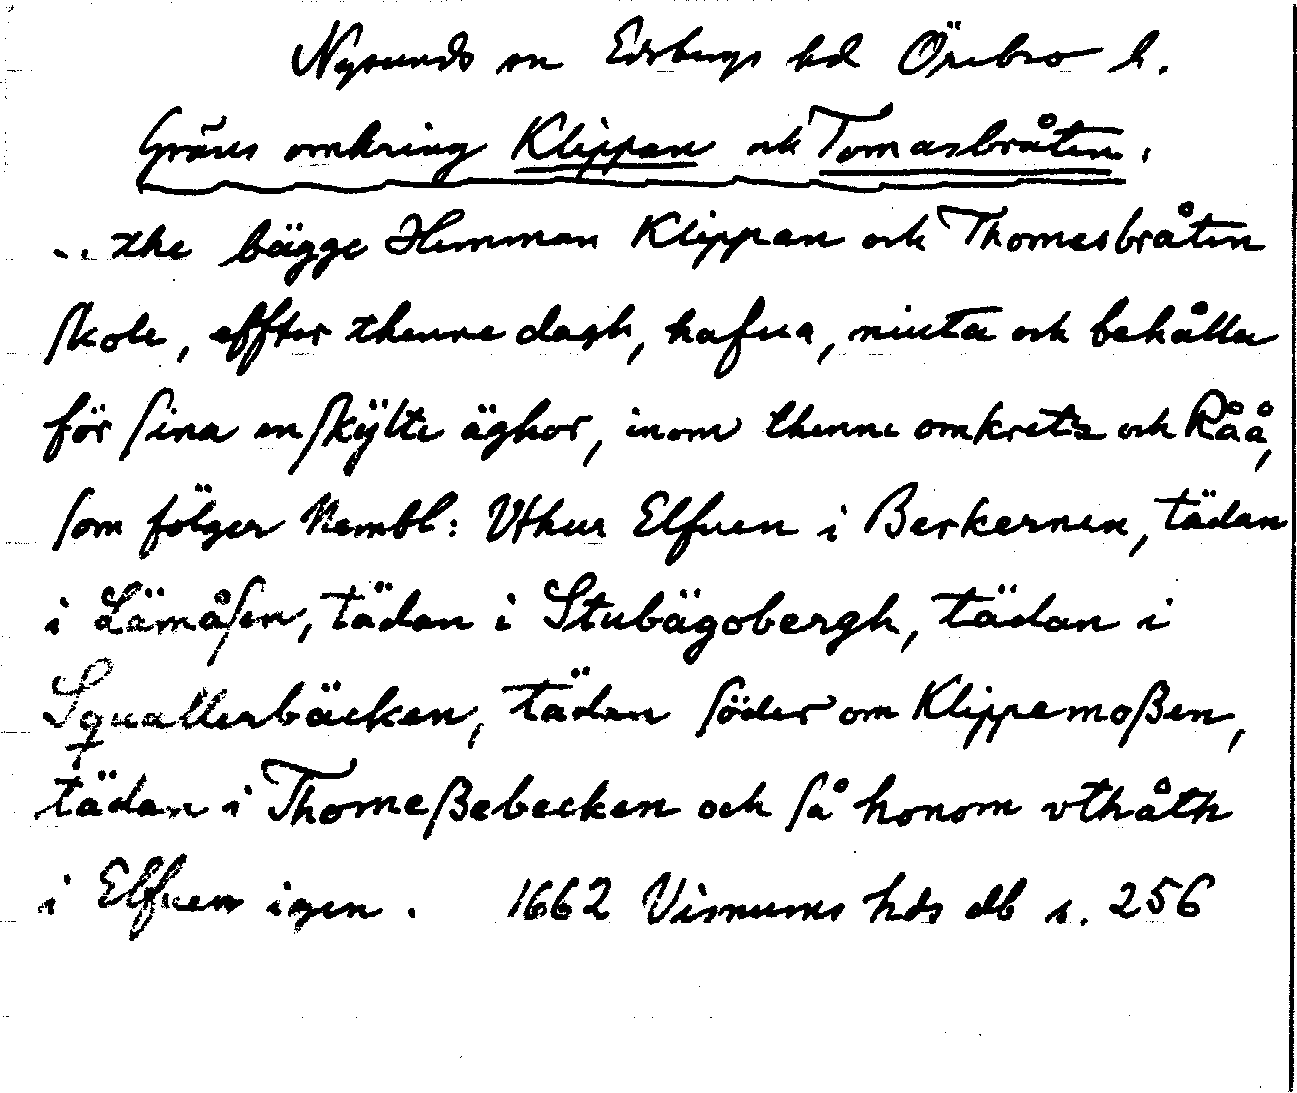 Nysunds sn Edsbergs hd Örebro l.
Gräns omkring Klippan och Tomasbråten.
.. the bägge Hemman Klippan och Thomesbråten
skole, effter thenne dagh, hafua, niuta och behålla
för sina enskÿlte äghor, inom thenne omkretz och Råå,
som fölger Nembl: Vthur Elfuen i Berkernen, tädan
i Lämåsen, tädan i Stubägobergh, tädan i
Squallerbäcken, tädan söder om Klippemoßen,
tädan i Thomeßebecken och så honom vthåth
i Elfuen igen. 1662 Visnums hds db s. 256